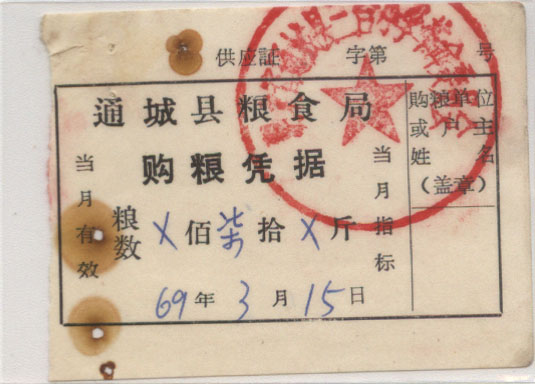 供应証 字第 号
通城县粮食局
购粮凭据
当月有效
粮数 X佰柒拾X斤
当月指标
69年3月15日
购粮单位
或户主
姓名
(盖章)